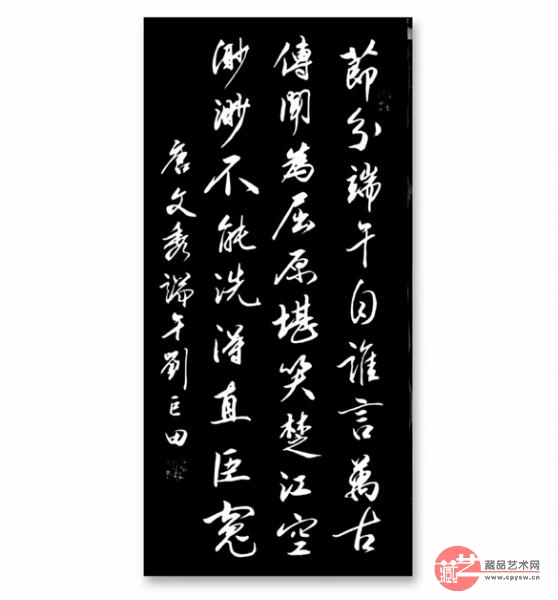 節分端午自誰言萬古
傳聞為屈原堪笑楚江空
渺渺不能洗得直臣冤
唐文秀端午劉巨田
藏艺
藏品艺术网
www.cpysw.cn